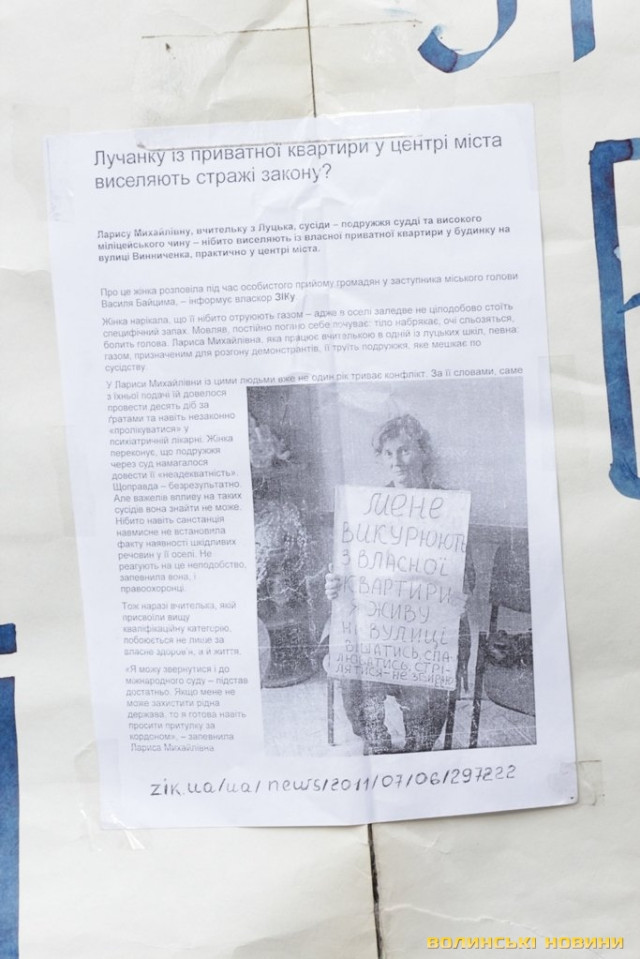 Лучанку із приватної квартири у центрі міста
виселяють стражі закону?
Ларису Михайлівну, вчительку з Луцька, сусіди – подружжя судді та високого
міліцейського чину – нібито виселяють із власної приватної квартири у будинку на
вулиці Винниченка, практично у центрі міста.
Про це жінка розповіла під час особистого прийому громадян у заступника міського голови
Василя Байцима, – інформує власкор ЗІКу
Жінка нарікала, що її нібито отруюють газом – адже в оселі заледве не цілодобово стоїть
специфічний запах. Мовляв, постійно погано себе почуває: тіло набрякає, очі сльозяться,
болить голова. Лариса Михайлівна, яка працює вчителькою в одній із луцьких шкіл, певна:
газом, призначеним для розгону демонстрантів, її труїть подружжя, яке мешкає по
сусідству.
У Лариси Михайлівни із цими людьми вже не один рік триває конфлікт. За її словами, саме
з їхньої подачі їй довелося
провести десять діб за
ґратами та навіть незаконно
«пролікуватися» у
психіатричній лікарні. Жінка
переконує, що подружжя
через суд намагалося
довести її «неадекватність».
Щоправда – безрезультатно.
Але важелів впливу на таких
сусідів вона знайти не може.
Нібито навіть санстанція
навмисне не встановила
факту наявності шкідливих
речовин у її оселі. Не
реагують на це неподобство,
запевнила вона, і
правоохоронці.
Тож наразі вчителька, якій
присвоїли вищу
кваліфікаційну категорію,
побоюється не лише за
власне здоров'я, а й життя.
«Я можу звернутися і до
міжнародного суду – підстав
достатньо. Якщо мене не
може захистити рідна
держава, то я готова навіть
просити притулку за
кордоном», – запевнила
Лариса Михайлівна
МЕНЕ
ВИКУРЮЮТЬ
З ВЛАСНОЇ
КВАРТИРИ
Я ЖИВУ
НА ВУЛИЦІ
zik.ua/ua/news/2011/07/06/297222
ВОЛИНСЬКІ НОВИНИ